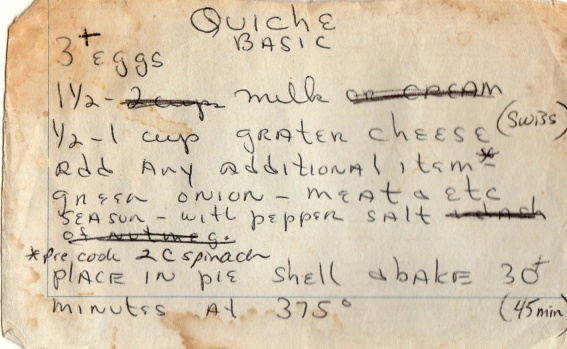 Quiche
Basic
3+ eggs
1½ - 2 cups milk or cream
½-1 cup grater cheese (Swiss)
add any additional item*
green onion - meat & etc
season - with pepper salt & dash
of nutmeg.
*pre cook 2 C spinach
place in pie shell & bake 30+
minutes at 375° (45 min)